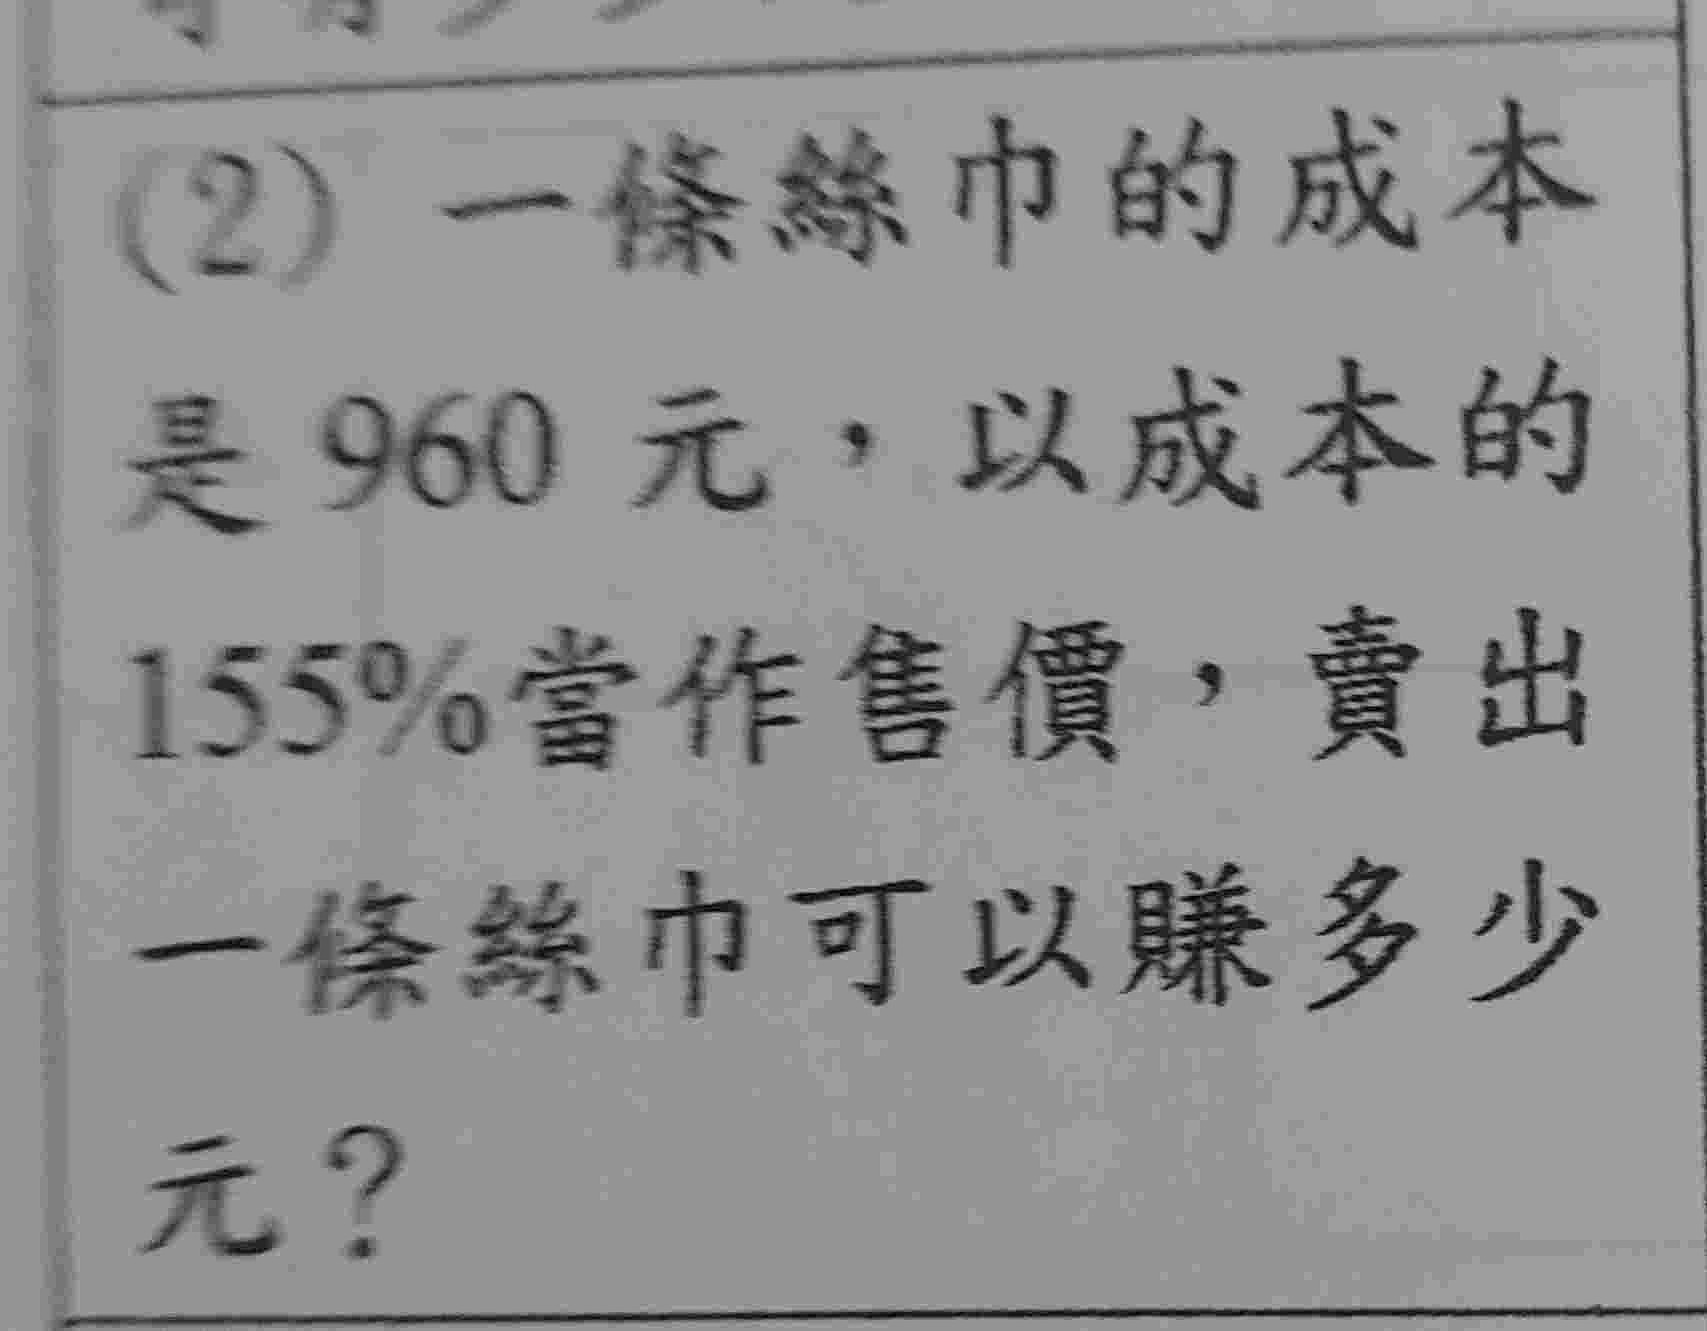 (2) 一條絲巾的成本
是 960 元，以成本的
155%當作售價，賣出
一條絲巾可以賺多少
元？